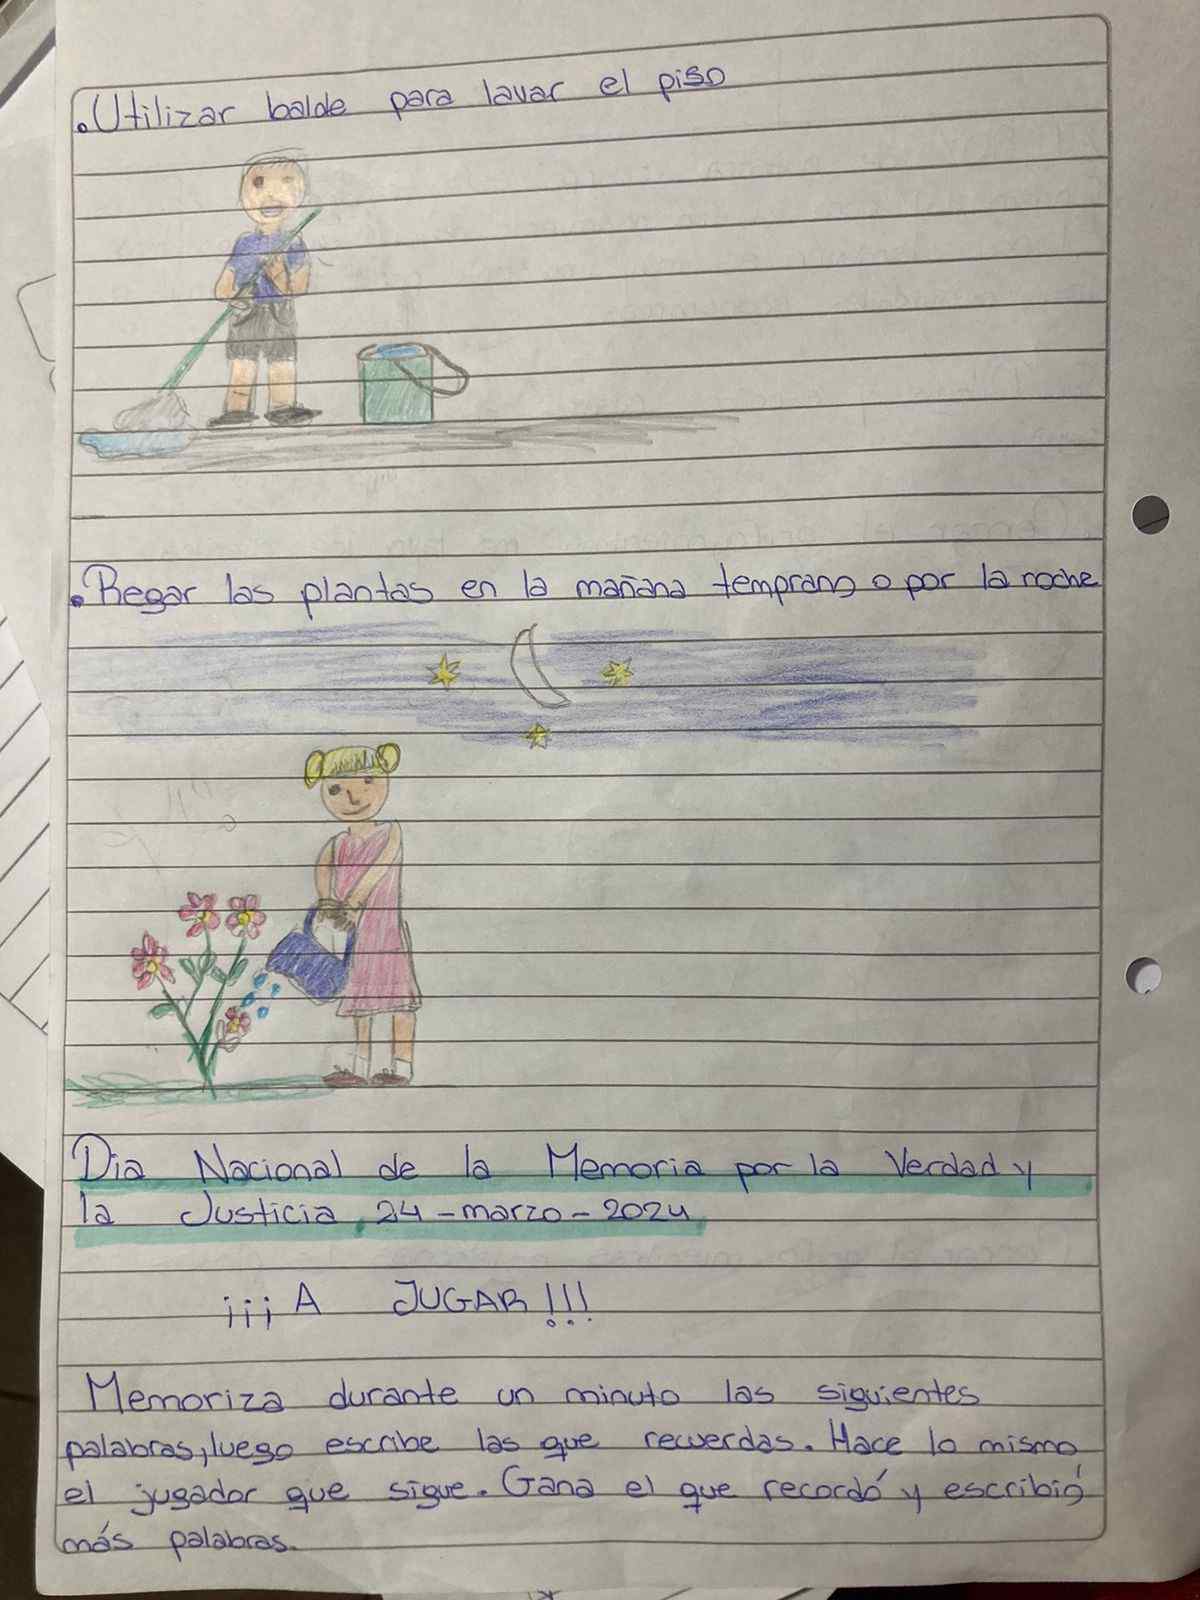 . Utilizar balde para lavar el piso
. Regar las plantas en la mañana temprano o por la noche
Dia Nacional de la Memoria por la Verdad y
la Justicia 24-marzo-2024
¡¡¡A JUGAR!!!
Memoriza durante un minuto las siguientes
palabras, luego escribe las que recuerdas. Hace lo mismo
el jugador que sigue. Gana el que recordó y escribió
más palabras.